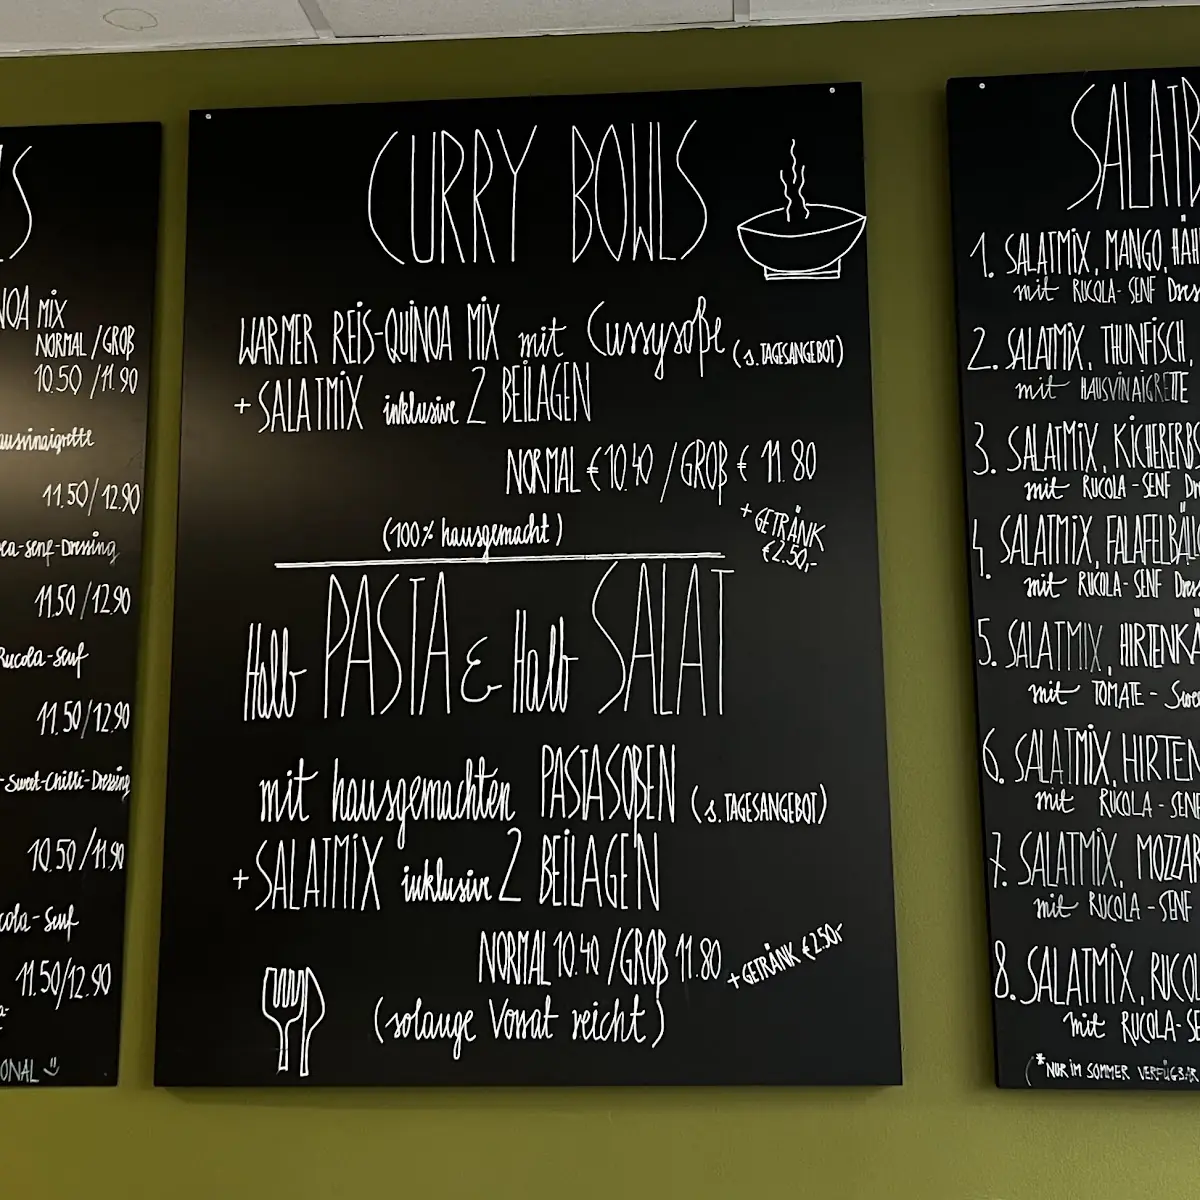 LS
NOA MIX
NORMAL / GROß
10.50 / 11.90
ausvinaigrette
11.50 / 12.90
ca-senf-Dressing
11.50 / 12.90
Rucola-Senf
11.50 / 12.90
-Sweet-Chilli-Dressing
10.50 / 11.90
cola-Senf
11.50 / 12.90
ONAL
CURRY BOWLS
WARMER REIS-QUINOA MIX mit Currysoße (s. TAGESANGEBOT)
+ SALATMIX inklusive 2 BEILAGEN
NORMAL € 10.40 / GROß € 11.80
+ GETRÄNK
€2.50,-
(100% hausgemacht)
Halb PASTA & Halb SALAT
mit hausgemachten PASTASOßEN (s. TAGESANGEBOT)
+ SALATMIX inklusive 2 BEILAGEN
NORMAL 10.40 / GROß 11.80 + GETRÄNK €2.50-
(solange Vorrat reicht)
SALATB
1. SALATMIX, MANGO, HÄH
mit RUCOLA - SENF Dres
2. SALATMIX, THUNFISCH
mit HAUSVINAIGRETTE
3. SALATMIX, KICHERERBS
mit RUCOLA - SENF Dre
4. SALATMIX, FALAFELBÄLL
mit RUCOLA - SENF Dres
5. SALATMIX, HIRTENKÄ
mit TOMATE - Swe
6. SALATMIX, HIRTEN
mit RUCOLA - SENF
7. SALATMIX, MOZZAR
mit RUCOLA - SENF
8. SALATMIX, RUCOL
mit RUCOLA - SE
(*NUR IM SOMMER VERFÜGBAR